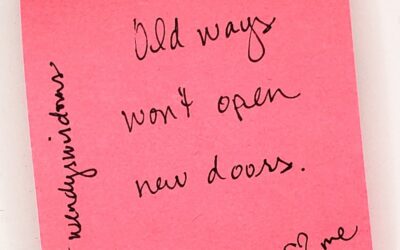 Old ways
won't open
new doors.
me
wendyswisdoms